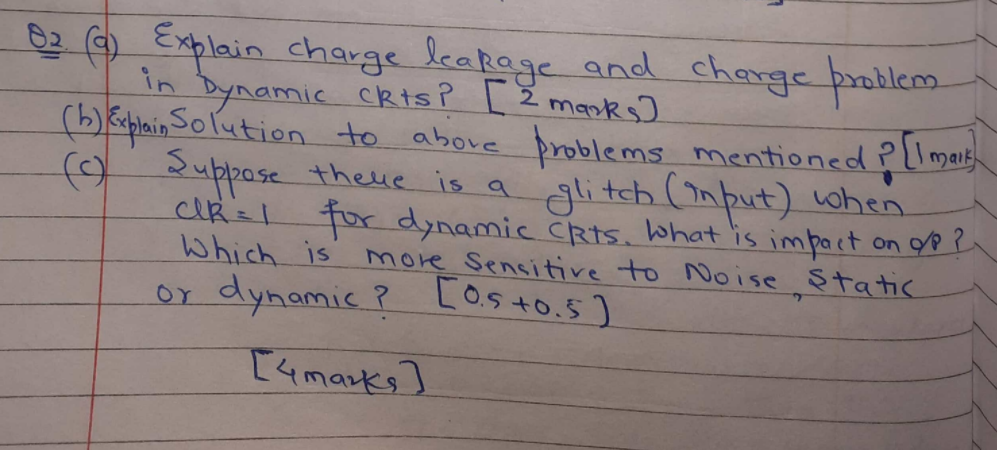 Q2. (a) Explain charge leakage and charge problem
in Dynamic CRts? [2 marks]
(b) Explain Solution to above problems mentioned? [1 mark]
(c) Suppose there is a glitch (input) when
clk=1 for dynamic CRTs. What is impact on o/p?
Which is more sensitive to Noise, Static
or dynamic? [0.5+0.5]
[4 marks]